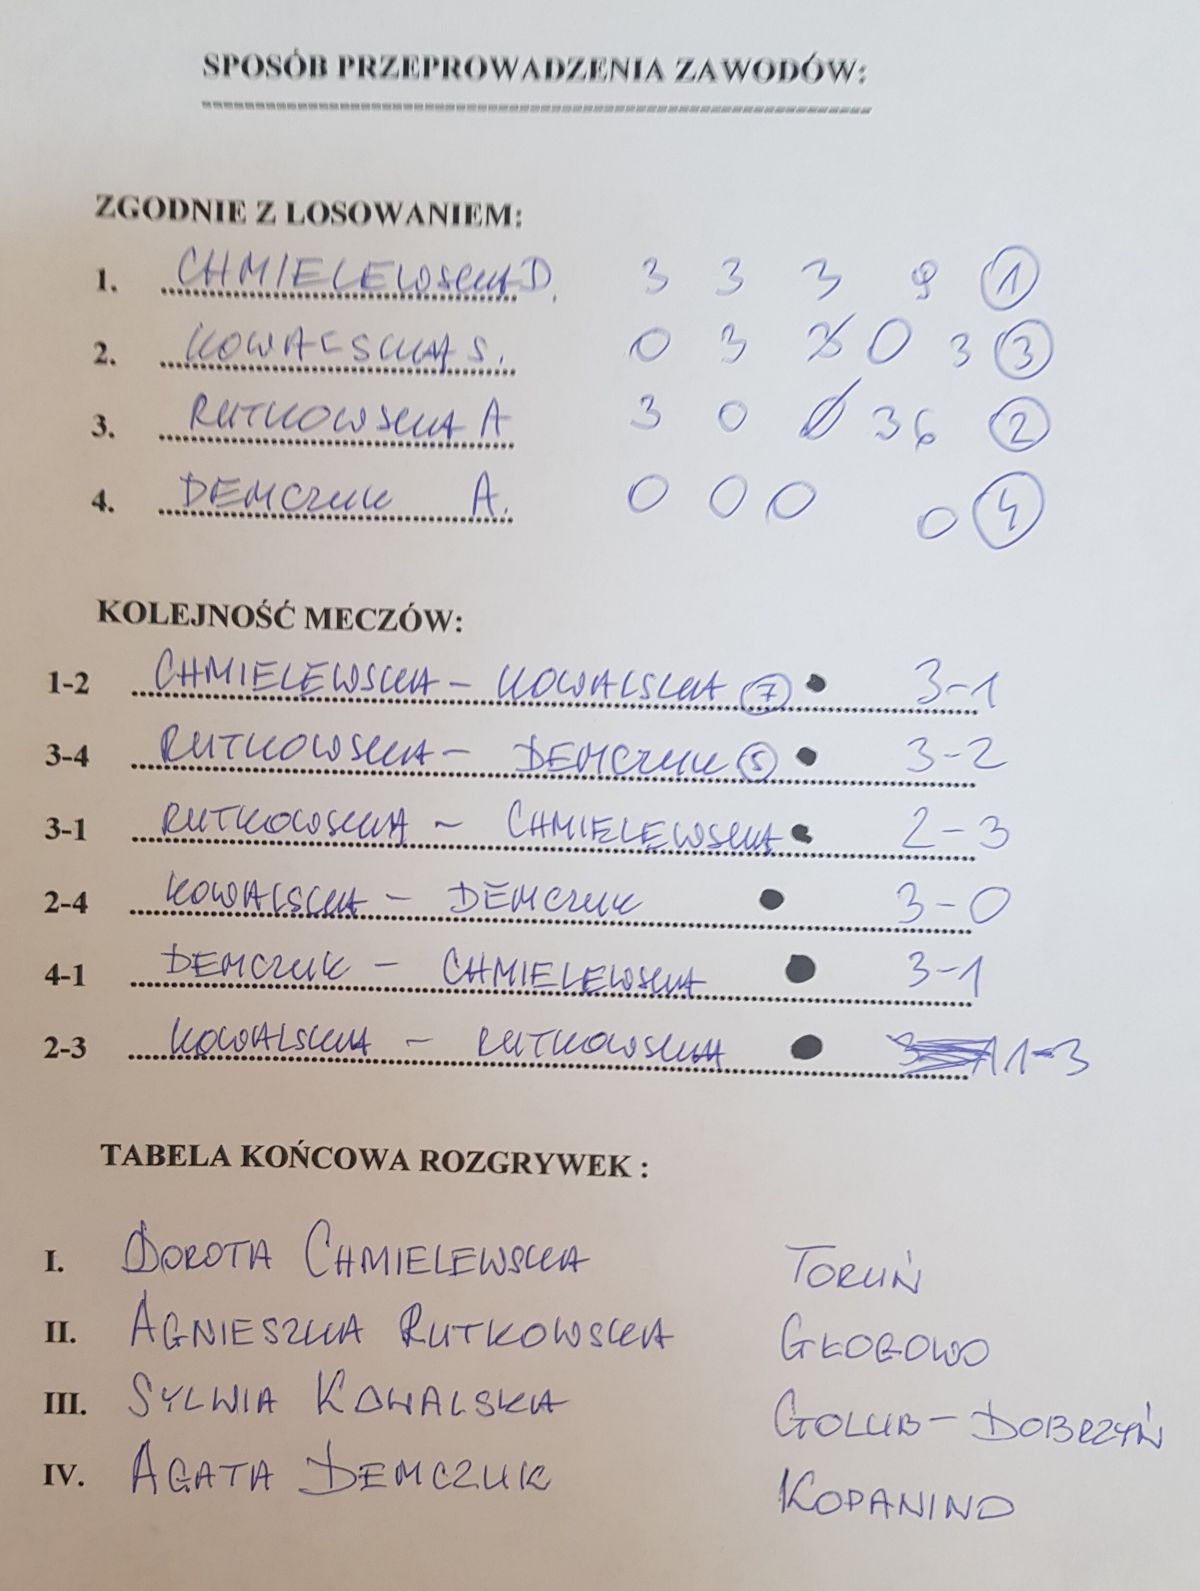 SPOSÓB PRZEPROWADZENIA ZAWODÓW:
ZGODNIE Z LOSOWANIEM:
1. CHMIELEWSKA D. 3 3 3 9 1
2. KOWALSKA S. 0 3 0 3 3
3. RUTKOWSKA A 3 0 3 6 2
4. DEMCZUK A. 0 0 0 0 4
KOLEJNOŚĆ MECZÓW:
1-2 CHMIELEWSKA - KOWALSKA 7 3-1
3-4 RUTKOWSKA - DEMCZUK 5 3-2
3-1 RUTKOWSKA - CHMIELEWSKA 2-3
2-4 KOWALSKA - DEMCZUK 3-0
4-1 DEMCZUK - CHMIELEWSKA 3-1
2-3 KOWALSKA - RUTKOWSKA 1-3
TABELA KOŃCOWA ROZGRYWEK :
I. DOROTA CHMIELEWSKA TORUŃ
II. AGNIESZKA RUTKOWSKA GŁOGOWO
III. SYLWIA KOWALSKA GOLUB-DOBRZYŃ
IV. AGATA DEMCZUK KOPANINO